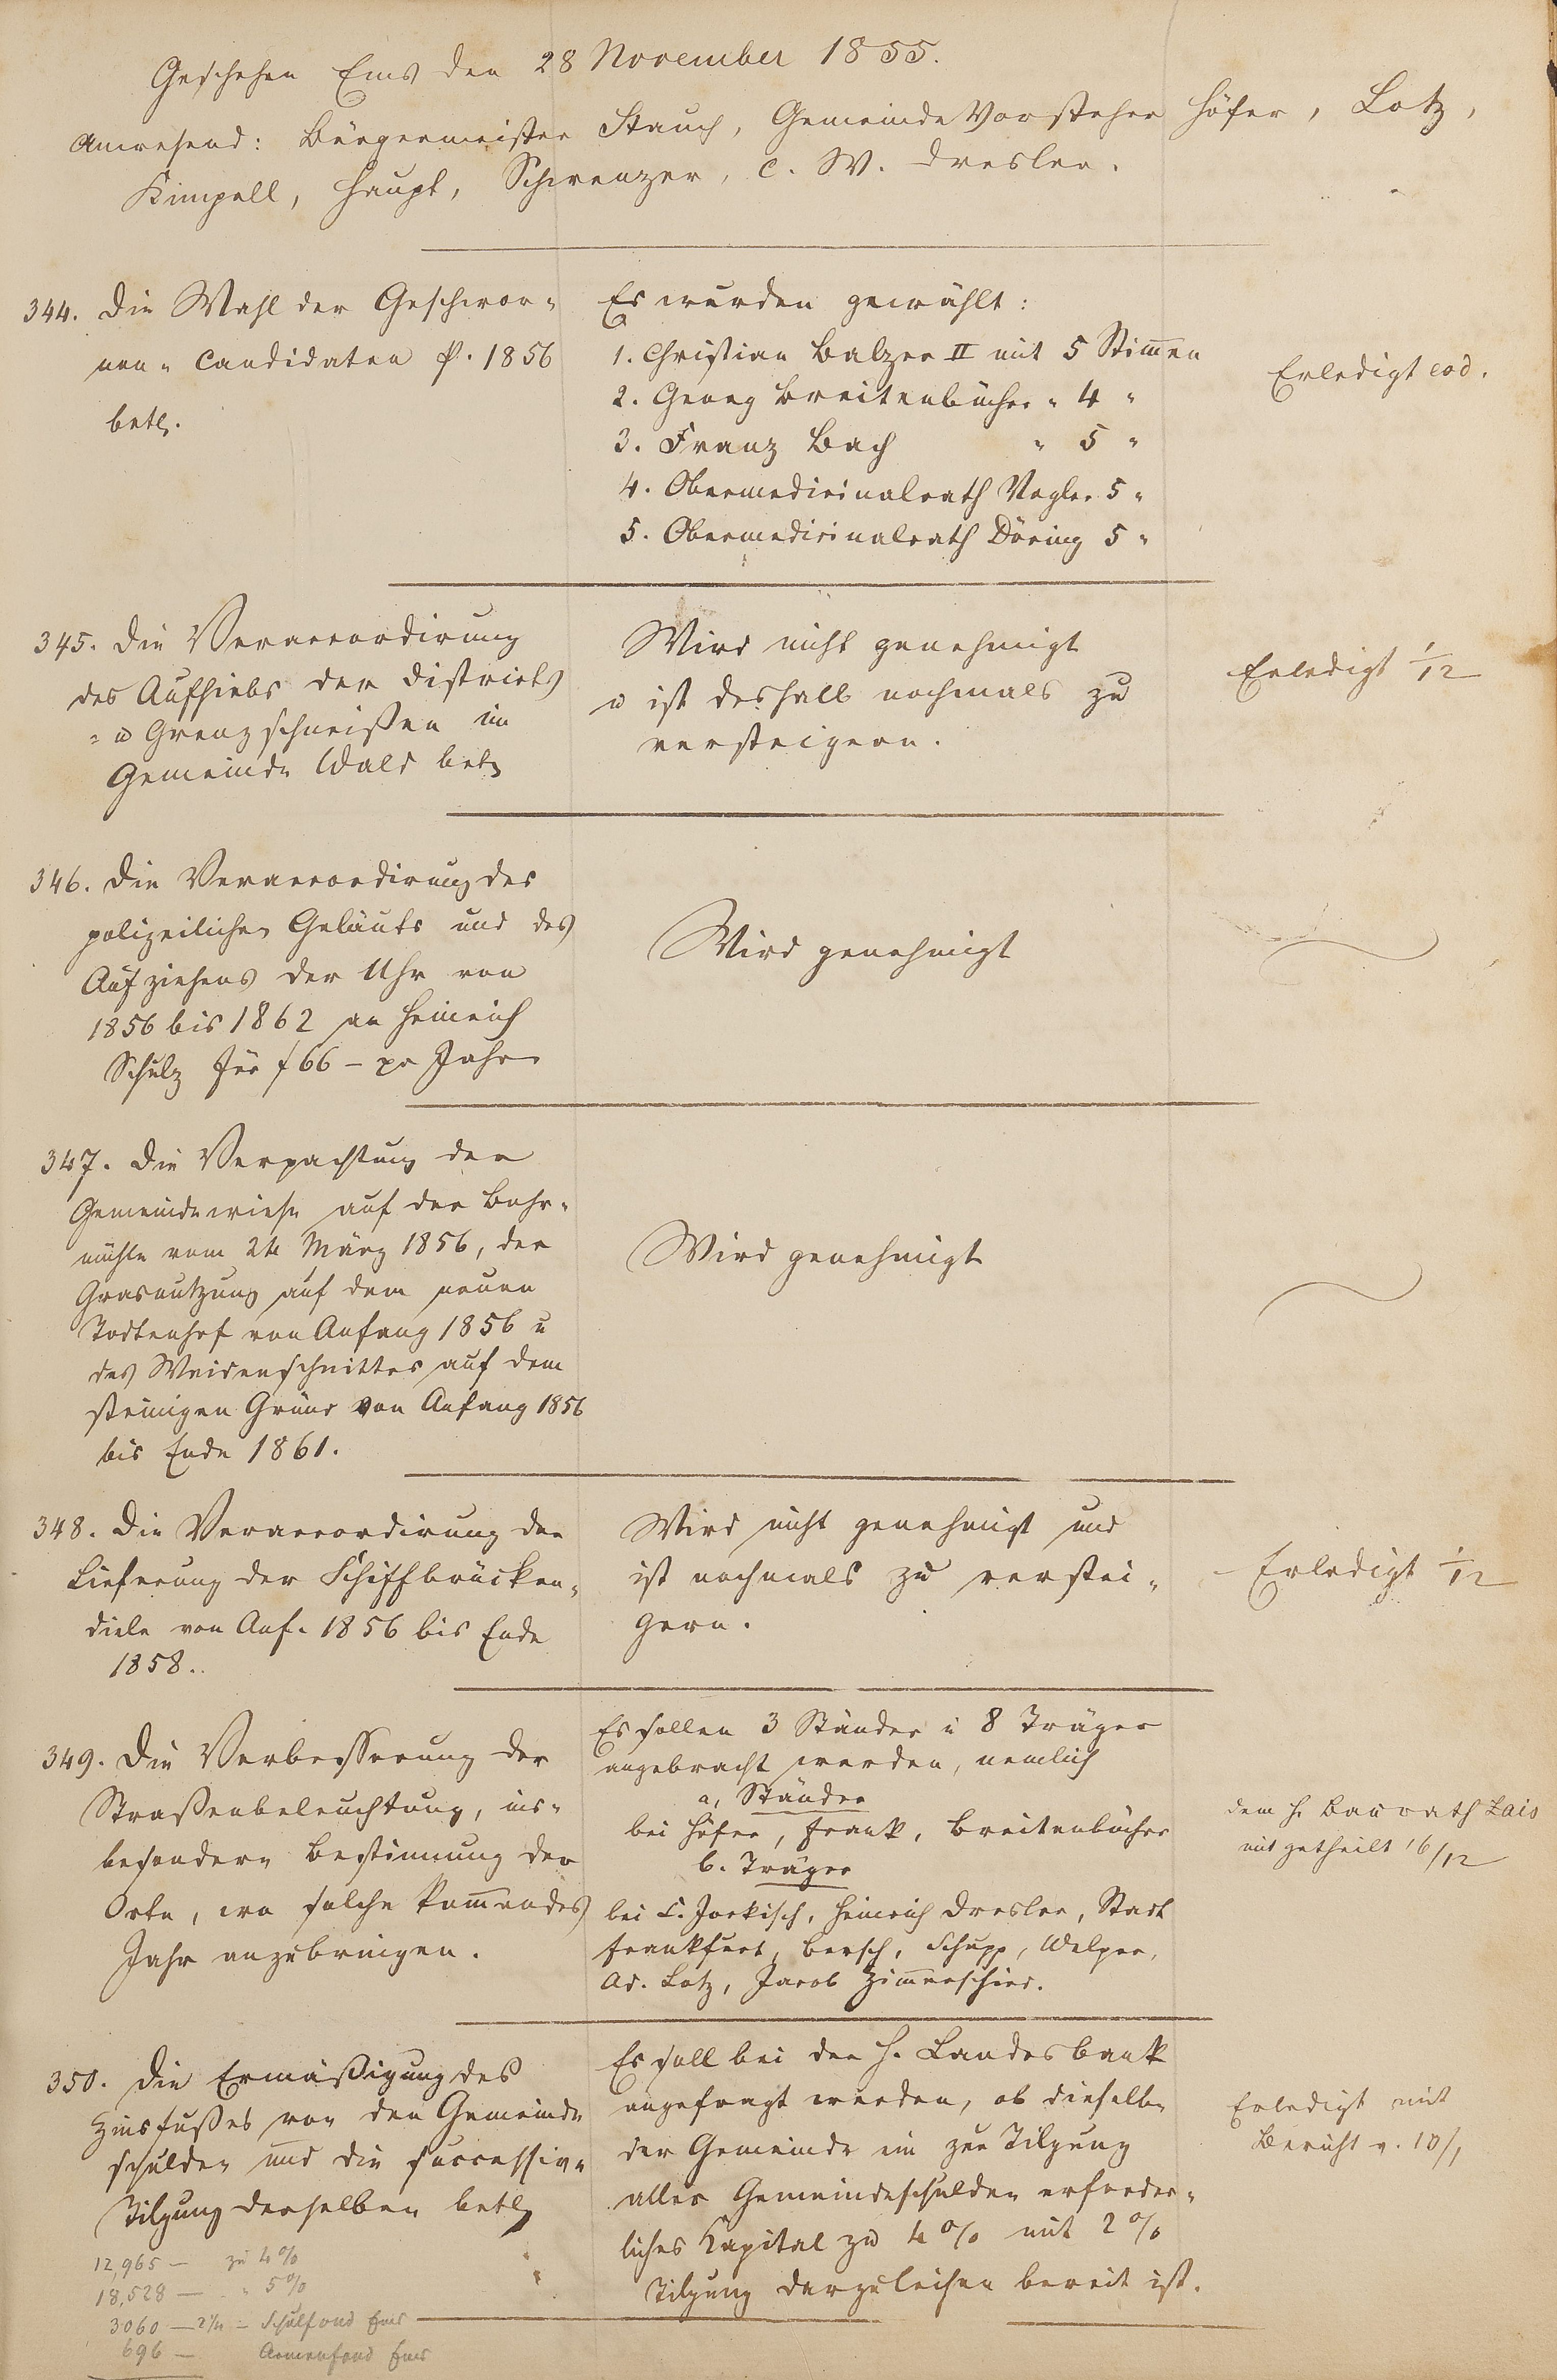 Geschehen Ems den 28 November 1855.
Anwesend: Bürgermeister Stauch, Gemeinde Vorsteher Höfer, Lotz,
Kimpell, Haupt, Schwenzer, C. W. Dresler.
344. Die Wahl der Geschwor-
nen- Candidaten p. 1856
betr.
Es wurden gewählt:
1. Christian Balzer II mit 5 Stimmen
2. Georg Breitenbücher " 4 "
3. Franz Bach " 5 "
4. Obermedicinalrath Vogler 5 "
5. Obermedicinalrath Döring 5 "
Erledigt eod.
345. Die Veraccordirung
des Aufhiebs der Districts
- u Grenzschneißen im
Gemeinde Wald betr
Wird nicht genehmigt
u ist deshalb nochmals zu
versteigern.
Erledigt 1/12
346. Die Veraccordirung des
polizeilichen Geläuts und des
Aufziehens der Uhr von
1856 bis 1862 an Heinrich
Schulz für f 66 – pr Jahr
Wird genehmigt
347. Die Verpachtung der
Gemeindewiese auf der Bohr-
mühle vom 2te März 1856, der
Grasnutzung auf dem neuen
Todtenhof von Anfang 1856 u
des Weidenschnittes auf dem
steinigen Grund von Anfang 1856
bis Ende 1861.
Wird genehmigt
348. Die Veraccordirung der
Lieferung der Schiffbrücken-
diele von Anf. 1856 bis Ende
1858.
Wird nicht genehmigt und
ist nochmals zu verstei-
gern.
Erledigt 1/12
349. Die Verbesserung der
Straßenbeleuchtung, ins-
besondere Bestimmung der
Orte, wo solche kommendes
Jahr anzubringen.
Es sollen 3 Ständer u 8 Träger
angebracht werden, nemlich
a, Ständer
bei Höfer, Frank, Breitenbücher
b. Träger
bei C. Jockisch, Heinrich Dresler, Stadt
Frankfurt, Bersch, Schupp, Welper,
Ad. Lotz, Jacob Zimmerschied.
dem H. Baurath Lais
mitgetheilt 16/12
350. Die Ermäßigung des
Zinsfußes von den Gemeinde
schulden und die successive
Tilgung derselben betr
12,965 – zu 4%
18,528 – " 5%
3060 – 2 1/4 – Schulfond Ems
696 – Armenfond Ems
Es soll bei der H. Landesbank
angefragt werden, ob dieselbe
der Gemeinde ein zur Tilgung
aller Gemeindeschulden erforder-
liches Kapital zu 4% mit 2%
Tilgung darzuleihen bereit ist.
Erledigt mit
Bericht v. 10/1